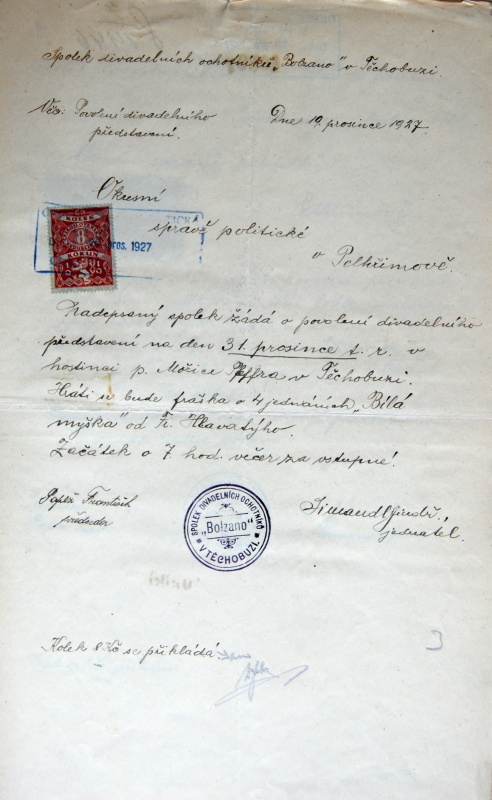 Spolek divadelních ochotníků „Bolzano" v Těchobuzi.
Věc: Povolení divadelního
představení.
Dne 19. prosince 1927.
Okresní
správě politické
v Pelhřimově.
KOLEK
8
KORUN
pros. 1927
Nadepsaný spolek žádá o povolení divadelního
představení na den 31. prosince t. r. v
hostinci p. Mořice v Těchobuzi.
Hráti se bude fraška o 4 jednáních „Bílá
myška" od Fr. Hlavatýho.
Začátek o 7 hod. večer za vstupné!
František
předseda
SPOLEK DIVADELNÍCH OCHOTNÍKŮ
„Bolzano"
V TĚCHOBUZI.
Simandl
jednatel.
Kolek 8 Kč se přikládá.
3